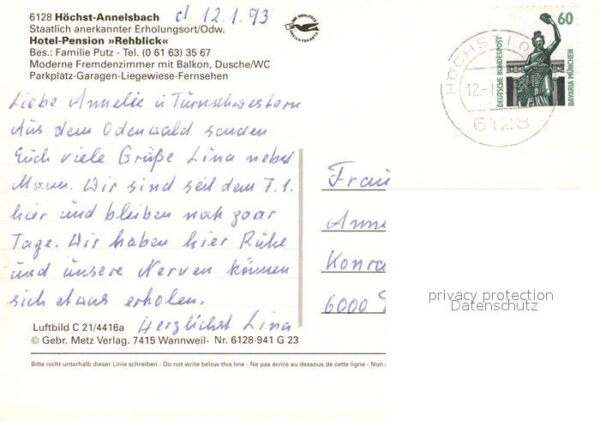 6128 Höchst-Annelsbach
d 12.1.93
Staatlich anerkannter Erholungsort/Odw.
Hotel-Pension »Rehblick«
Bes.: Familie Putz - Tel. (0 61 63) 35 67
Moderne Fremdenzimmer mit Balkon, Dusche/WC
Parkplatz-Garagen-Liegewiese-Fernsehen
60
DEUTSCHE BUNDESPOST
BAVARIA MÜNCHEN
HÖCHST I O
12.-1
6128
Liebe Annelie u Turnschwestern
Aus dem Odenwald senden
Euch viele Grüße Lina nebst
Mann. Wir sind seit dem 7.1.
hier und bleiben noch paar
Tage. Wir haben hier Ruhe
und unsere Nerven können
sich etwas erholen.
Herzlichst Lina
Frau
Anne
Konra
6000
privacy protection
Datenschutz
Luftbild C 21/4416a
© Gebr. Metz Verlag. 7415 Wannweil- Nr. 6128-941 G 23
Bitte nicht unterhalb dieser Linie schreiben - Do not write below this line - Ne pas écrire au dessous de cette ligne